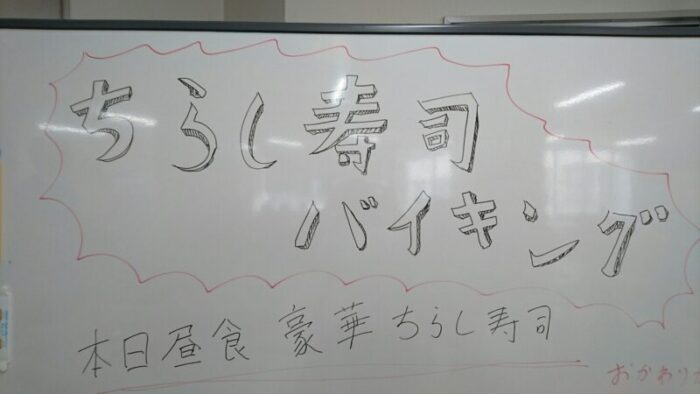 ちらし寿司
バイキング
本日昼食 豪華ちらし寿司
おかわり